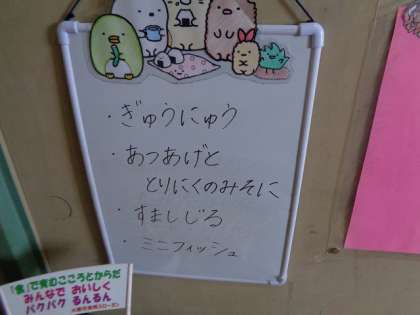 ・ぎゅうにゅう
・あつあげと
とりにくのみそに
・すましじる
・ミニフィッシュ
「食」で育むこころとからだ
みんなで おいしく
パクパク るんるん